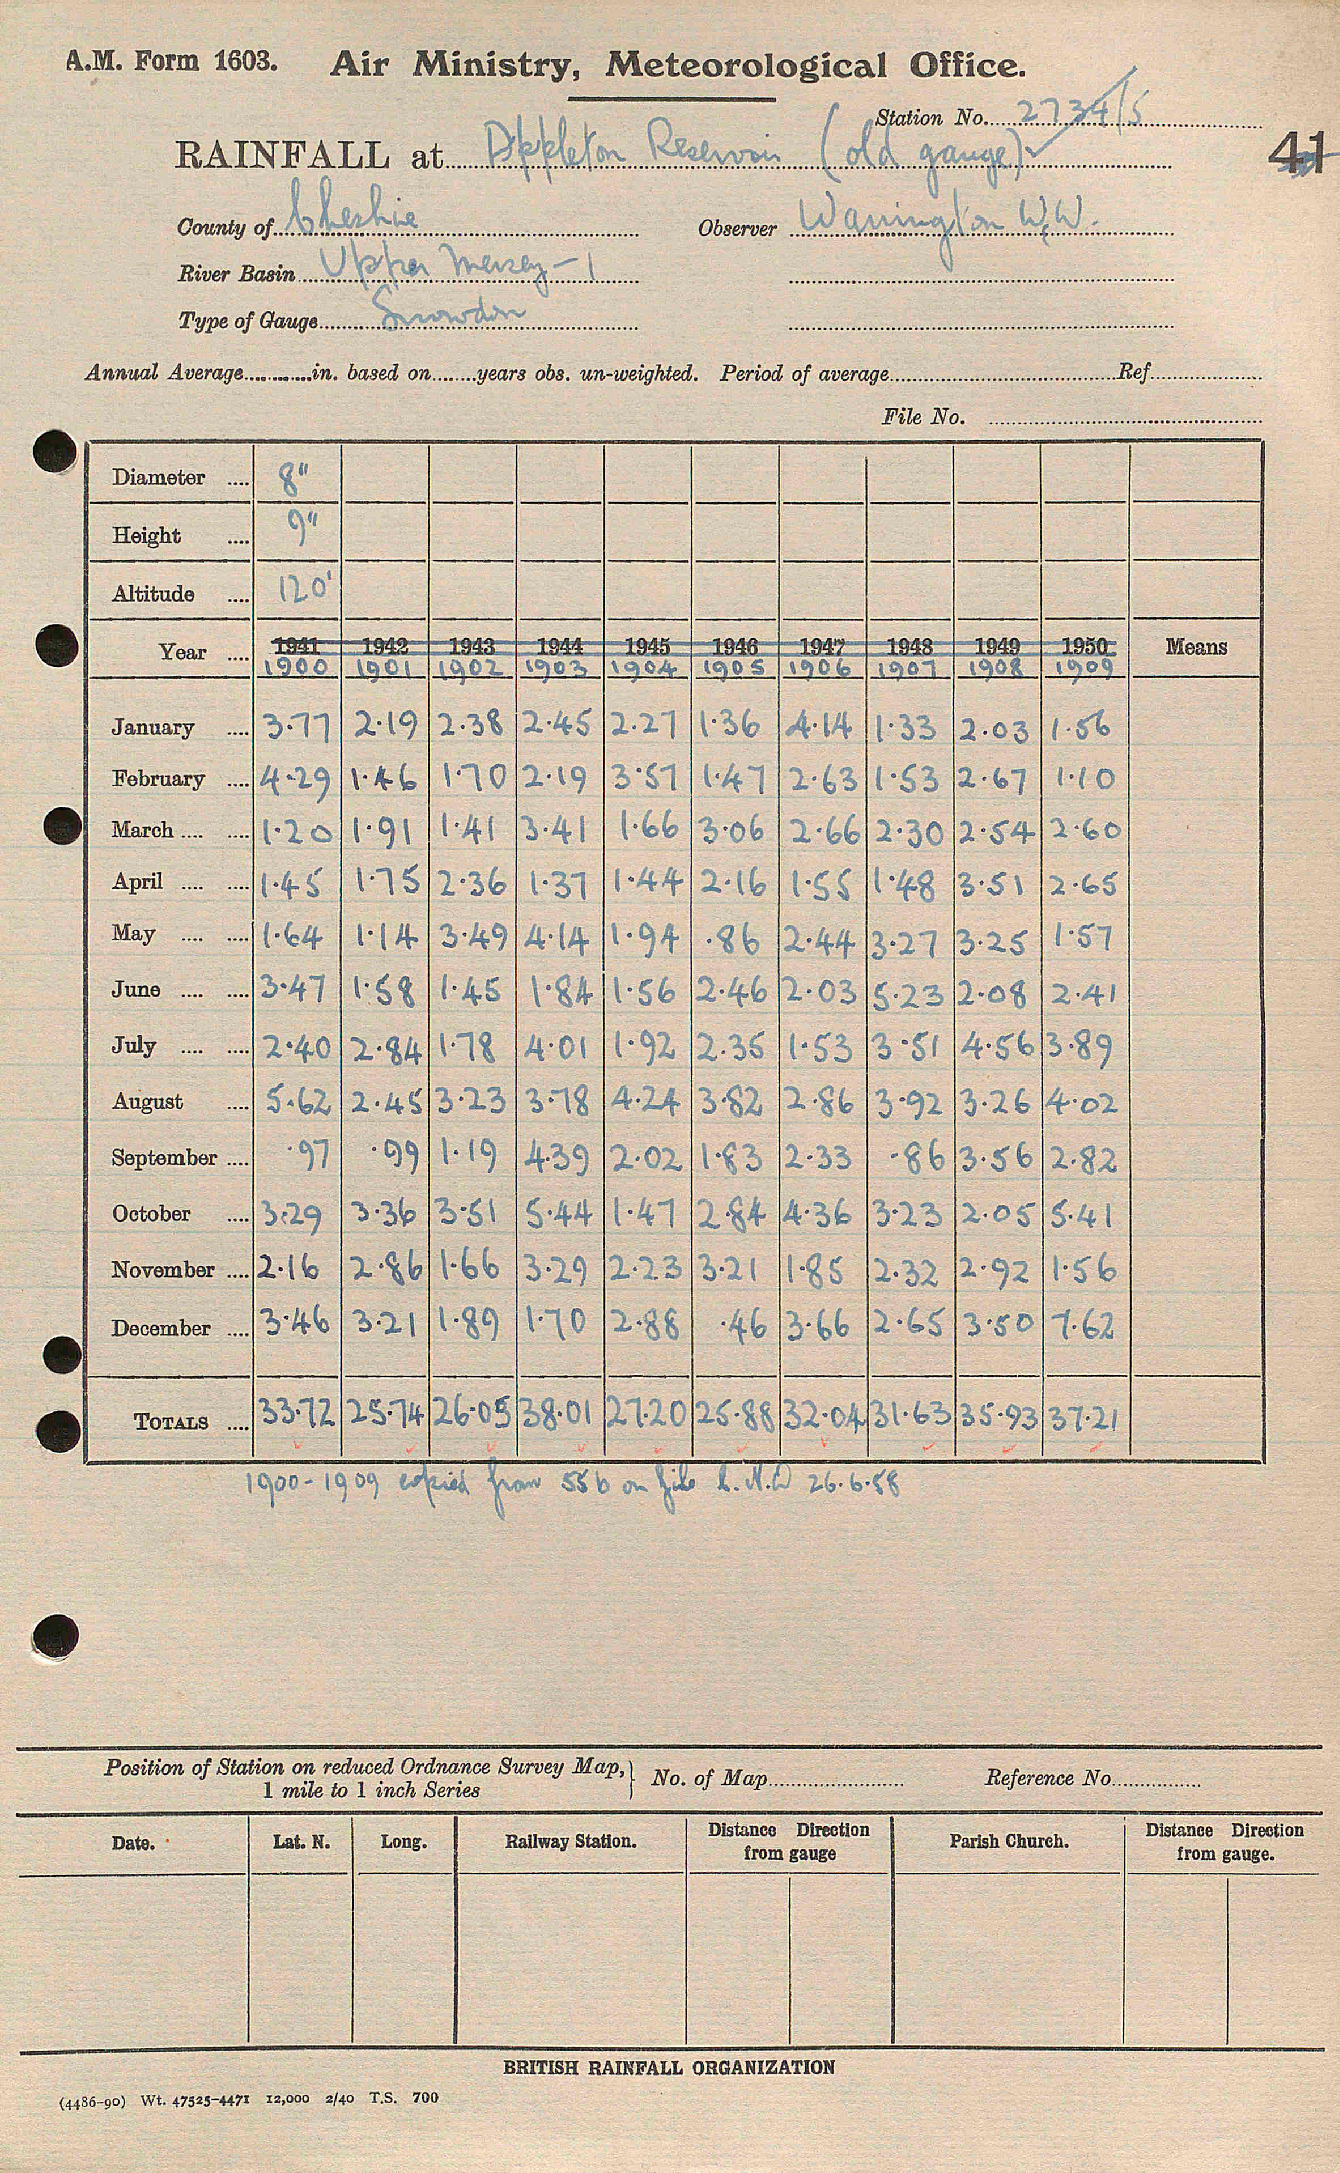 A.M. Form 1603. Air Ministry, Meteorological Office.
Station No. 2734/5
RAINFALL at Appleton Reservoir (old gauge) 41
County of Cheshire Observer Warrington W.W.
River Basin Upper Mersey - 1
Type of Gauge Snowdon
Annual Average in. based on years obs. un-weighted. Period of average Ref.
File No.
Diameter 8"
Height 9"
Altitude 120'
Year 1941 1942 1943 1944 1945 1946 1947 1948 1949 1950 Means
1900 1901 1902 1903 1904 1905 1906 1907 1908 1909
January 3.77 2.19 2.38 2.45 2.27 1.36 4.14 1.33 2.03 1.56
February 4.29 1.46 1.70 2.19 3.57 1.47 2.63 1.53 2.67 1.10
March 1.20 1.91 1.41 3.41 1.66 3.06 2.66 2.30 2.54 2.60
April 1.45 1.75 2.36 1.37 1.44 2.16 1.55 1.48 3.51 2.65
May 1.64 1.14 3.49 4.14 1.94 .86 2.44 3.27 3.25 1.57
June 3.47 1.58 1.45 1.84 1.56 2.46 2.03 5.23 2.08 2.41
July 2.40 2.84 1.78 4.01 1.92 2.35 1.53 3.51 4.56 3.89
August 5.62 2.45 3.23 3.78 4.24 3.82 2.86 3.92 3.26 4.02
September .97 .99 1.19 4.39 2.02 1.83 2.33 .86 3.56 2.82
October 3.29 3.36 3.51 5.44 1.47 2.84 4.36 3.23 2.05 5.41
November 2.16 2.86 1.66 3.29 2.23 3.21 1.85 2.32 2.92 1.56
December 3.46 3.21 1.89 1.70 2.88 .46 3.66 2.65 3.50 7.62
TOTALS 33.72 25.74 26.05 38.01 27.20 25.88 32.04 31.63 35.93 37.21
1900-1909 copied from 556 on file 26.6.58
Position of Station on reduced Ordnance Survey Map, No. of Map Reference No.
1 mile to 1 inch Series
Date. Lat. N. Long. Railway Station. Distance Direction from gauge Parish Church. Distance Direction from gauge.
BRITISH RAINFALL ORGANIZATION
(4486-90) Wt. 47525-4471 12,000 2/40 T.S. 700